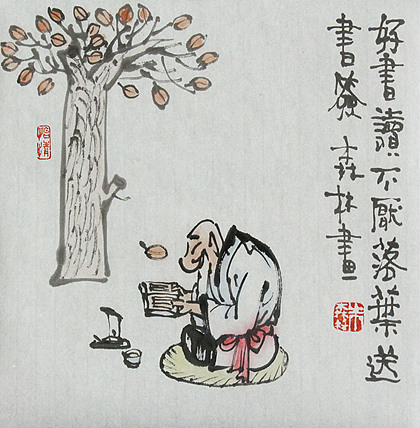 好書讀不厭落葉送
書簽 森林畫